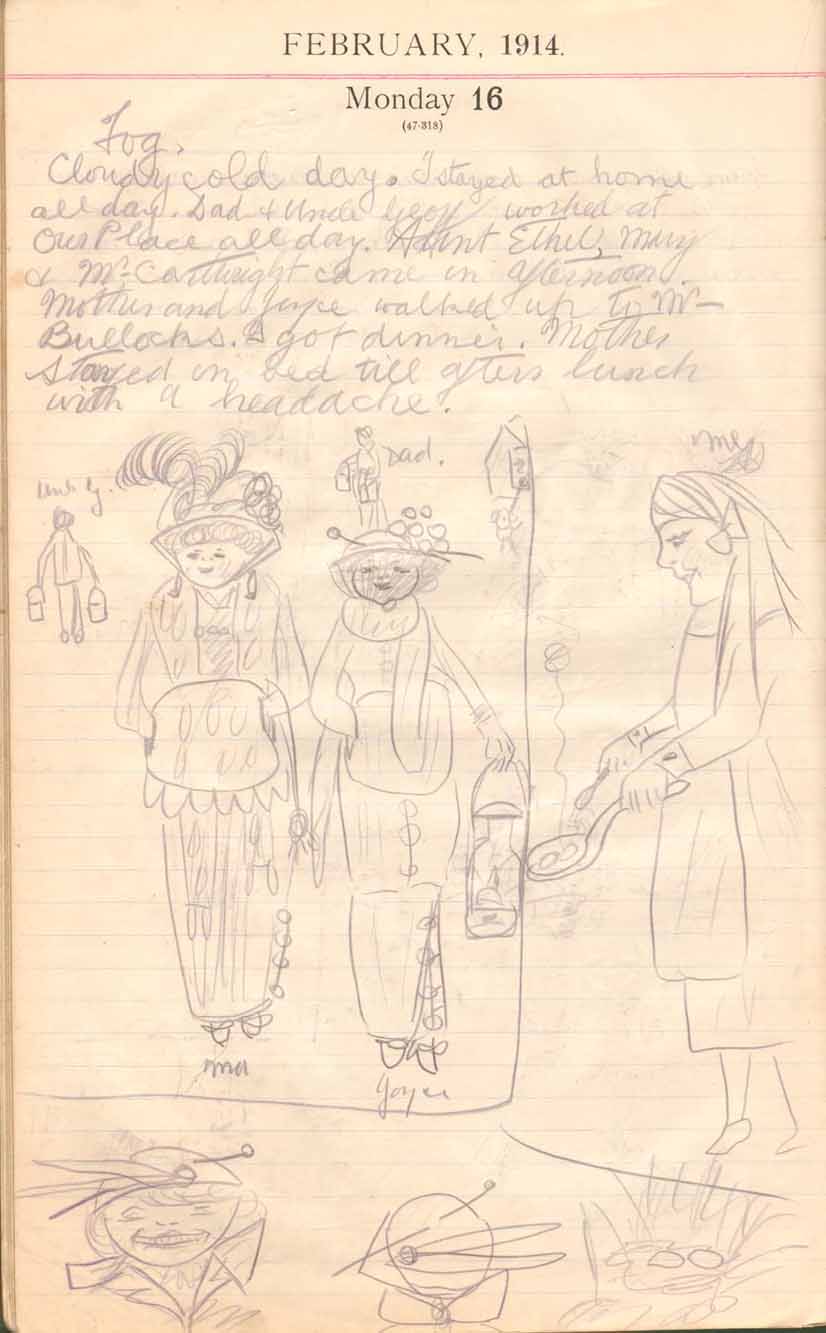 FEBRUARY, 1914.
Monday 16
(47-318)
Fog.
Cloudy cold day. I stayed at home
all day. Dad & Uncle Geoff worked at
Our Place all day. Aunt Ethel, Mary
& Mrs Cartwright came in afternoon.
Mother and Joyce walked up to Mr
Bullocks. I got dinner. Mother
stayed in bed till after lunch
with a headache.
Dad.
me
ma
Joyce